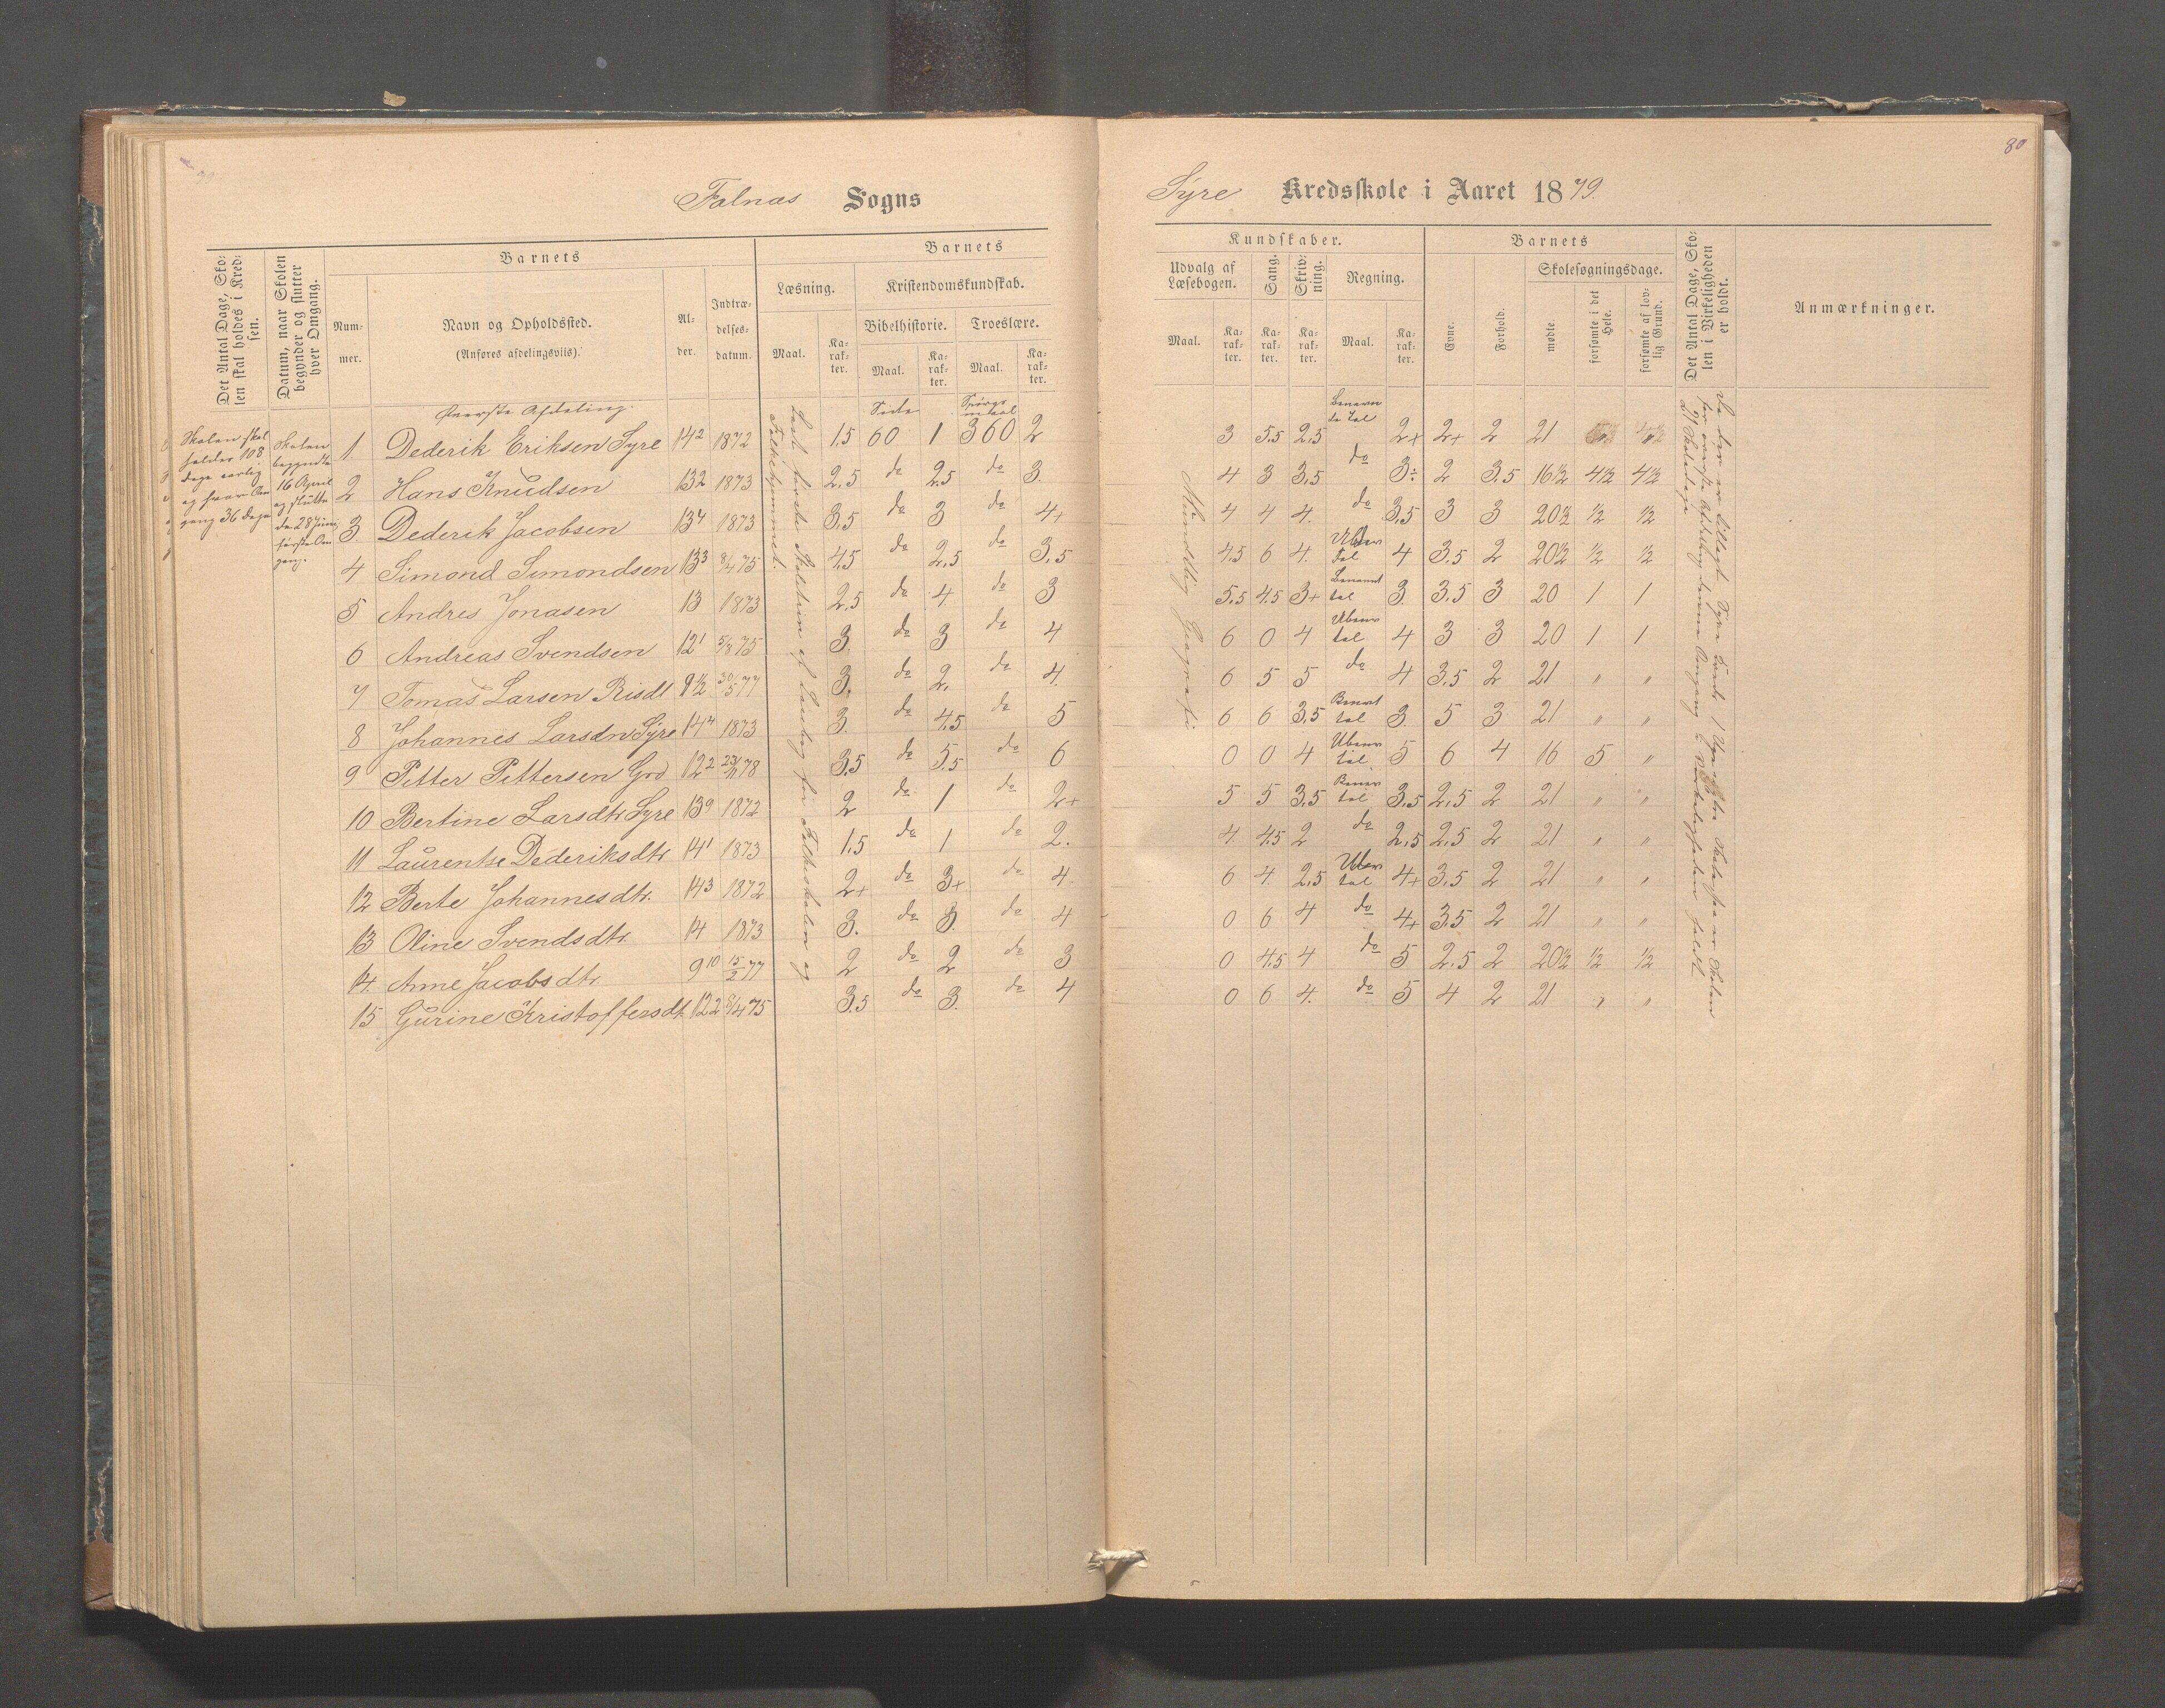 80
Falnæs Sogns
Syre Kredsskole i Aaret 1879.
Det Antal Dage, Skolen skal holdes i Kredsen.
Datum, naar Skolen begynder og slutter hver Omgang.
Barnets
Nummer.
Navn og Opholdssted.
(Anføres afdelingsvils).
Alder.
Indtrædelsesdatum.
Barnets
Læsning.
Maal.
Karakter.
Kristendomskundskab.
Bibelhistorie.
Maal.
Karakter.
Troeslære.
Maal.
Karakter.
Kundskaber.
Udvalg af Læsebogen.
Maal.
Karakter.
Sang.
Karakter.
Skrivning.
Karakter.
Regning.
Maal.
Karakter.
Barnets
Evne.
Forhold.
Skolesøgningsdage.
mødte.
forsømte i det Hele.
forsømte af lovlig Grund.
Det Antal Dage, Skolen i Virkeligheden er holdt.
Anmærkninger.
Skolen skal
holdes 108
dage aarlig
og hver Om
gang 36 dage
Skolen
begyndte
16 April
og sluttet
de 28 Juni
første Om
gang.
Øverste Afdeling.
Side
Spørgs
maal
1. Dederik Eriksen Syre 14 2 1872 1,5 60 1 360 2 3 5,5 2,5 2+ 2+ 2 21
2 Hans Knudsen 13 2 1873 2,5 do 2,5 do 3. 4 3 3,5 do 3÷ 2 3.5 16½ 4½ 4½
3 Dederik Jacobsen 13 4 1873 3,5 do 3 do 4+ 4 4 4. do 3,5 3 3 20½ ½ ½
4 Simond Simondsen 13 3 8/4 75 4,5 do 2,5 do 3,5 4,5 6 4. Ubenv tal 4 3.5 2 20½ ½ ½
5 Andres Jonasen 13 1873 2,5 do 4 do 3 5,5 4,5 3+ Benævnt tal 3. 3.5 3 20 1 1
6 Andreas Svendsen 12 1 5/8 75 3. do 3 do 4 6 0 4 Ubenv tal 4 3 3 20 1 1
7 Tomas Larsen Risdl 9½ 30/5 77 3. do 2. do 4. 6 5 5 do 4 3,5 2 21 " "
8 Johannes Larsdn Syre 14 4 1873 3. do 4,5 do 5 6 6 3,5 Benævt tal 3. 5 3 21 " "
9 Pitter Pittersen Grd 12 2 23/11 78 3,5 do 5,5 do 6 0 0 4 Ubenv tal 5 6 4 16 5 "
10 Bertine Larsdtr Syre 13 9 1872 2 do 1 do 2+ 5 5 3,5 Benæv tal 3,5 2,5 2 21 " "
11 Laurentse Dederiksdtr 14 1 1873 1,5 do 1 do 2. 4. 4,5 2 do 2,5 2,5 2 21 " "
12 Berte Johannesdtr. 14 3 1872 2+ do 3+ do 4 6 4 2,5 Ubenv tal 4+ 3,5 2 21 " "
13 Oline Svendsdtr 14 1873 3. do 3. do 4 0 6 4 do 4+ 3,5 2 21 " "
14. Anne Jacobsdtr. 9 10 15/2 77 2 do 2 do 3 0 4,5 4 do 5 2.5 2 20½ ½ ½
15 Gurine Kristoffersdt. 12 2 8/4 75 3,5 do 3. do 4 0 6 4. do 5 4 2 21 " "